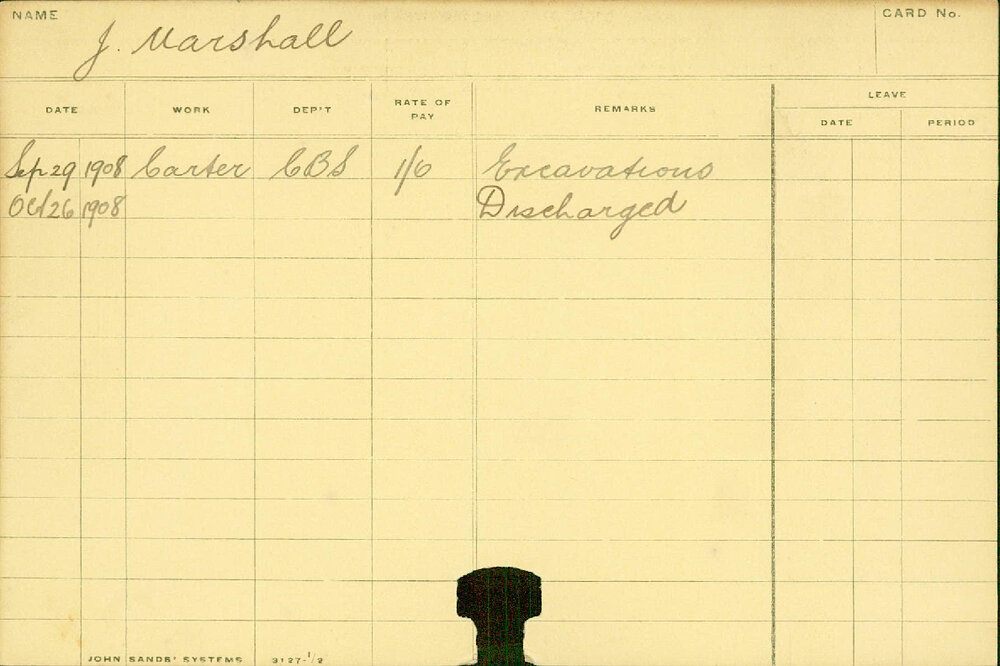 NAME J. Marshall CARD No.
DATE WORK DEP'T RATE OF PAY REMARKS LEAVE
DATE PERIOD
Sep 29 1908 Carter CBS 1/0 Excavations
Oct 26 1908 Discharged
JOHN SANDS' SYSTEMS 3127-1/2